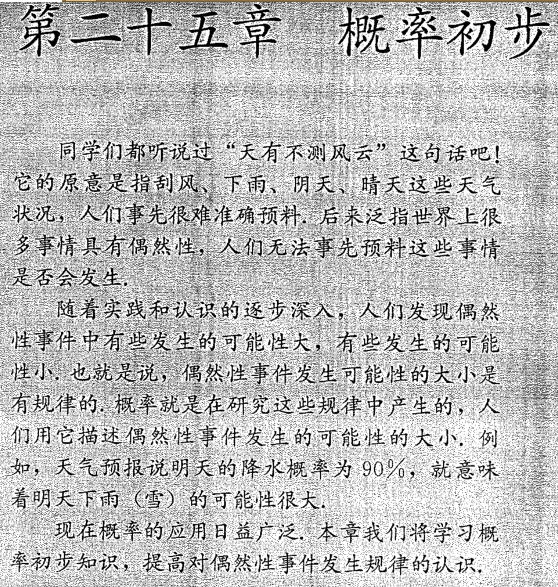 第二十五章 概率初步
同学们都听说过“天有不测风云”这句话吧!
它的原意是指刮风、下雨、阴天、晴天这些天气
状况，人们事先很难准确预料. 后来泛指世界上很
多事情具有偶然性，人们无法事先预料这些事情
是否会发生.
随着实践和认识的逐步深入，人们发现偶然
性事件中有些发生的可能性大，有些发生的可能
性小. 也就是说，偶然性事件发生可能性的大小是
有规律的. 概率就是在研究这些规律中产生的，人
们用它描述偶然性事件发生的可能性的大小. 例
如，天气预报说明天的降水概率为 90%，就意味
着明天下雨（雪）的可能性很大.
现在概率的应用日益广泛. 本章我们将学习概
率初步知识，提高对偶然性事件发生规律的认识.